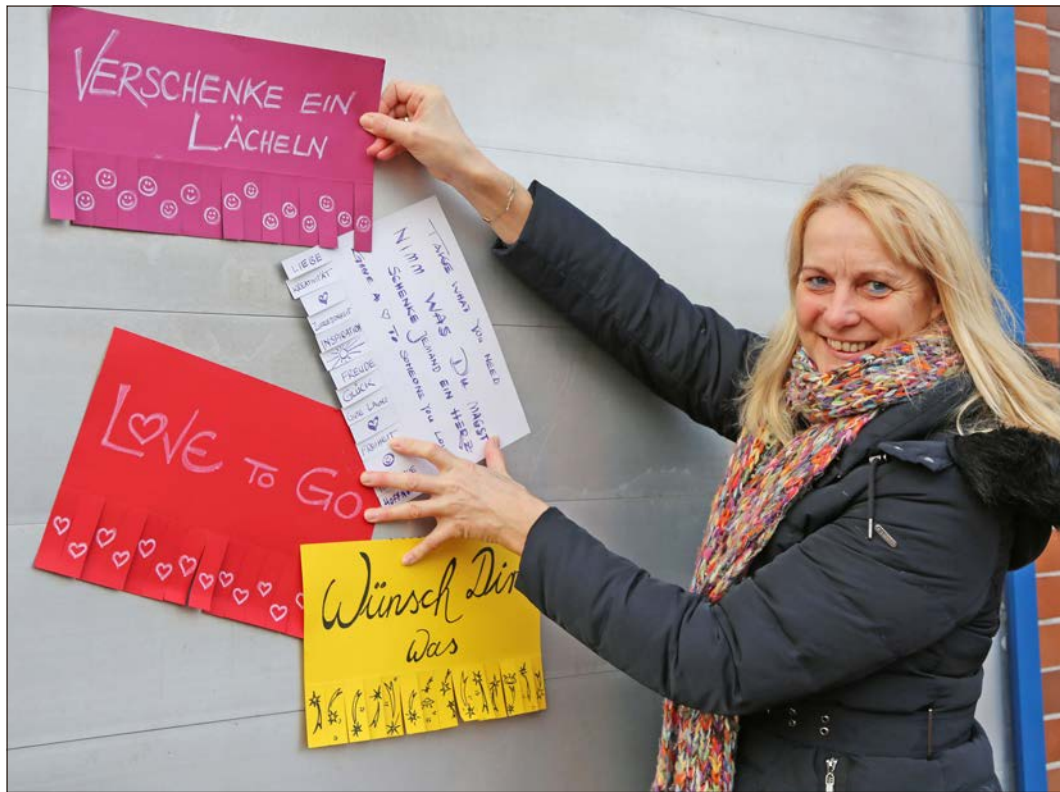 VERSCHENKE EIN
LÄCHELN
TAKE WHAT YOU NEED
NIMM WAS DU MAGST
SCHENKE JEMAND EIN HERZ
TO SOMEONE YOU
LIEBE
KREATIVITÄT
INSPIRATION
FREUDE
GLÜCK
FREIHEIT
LOVE TO GO
Wünsch Dir
was